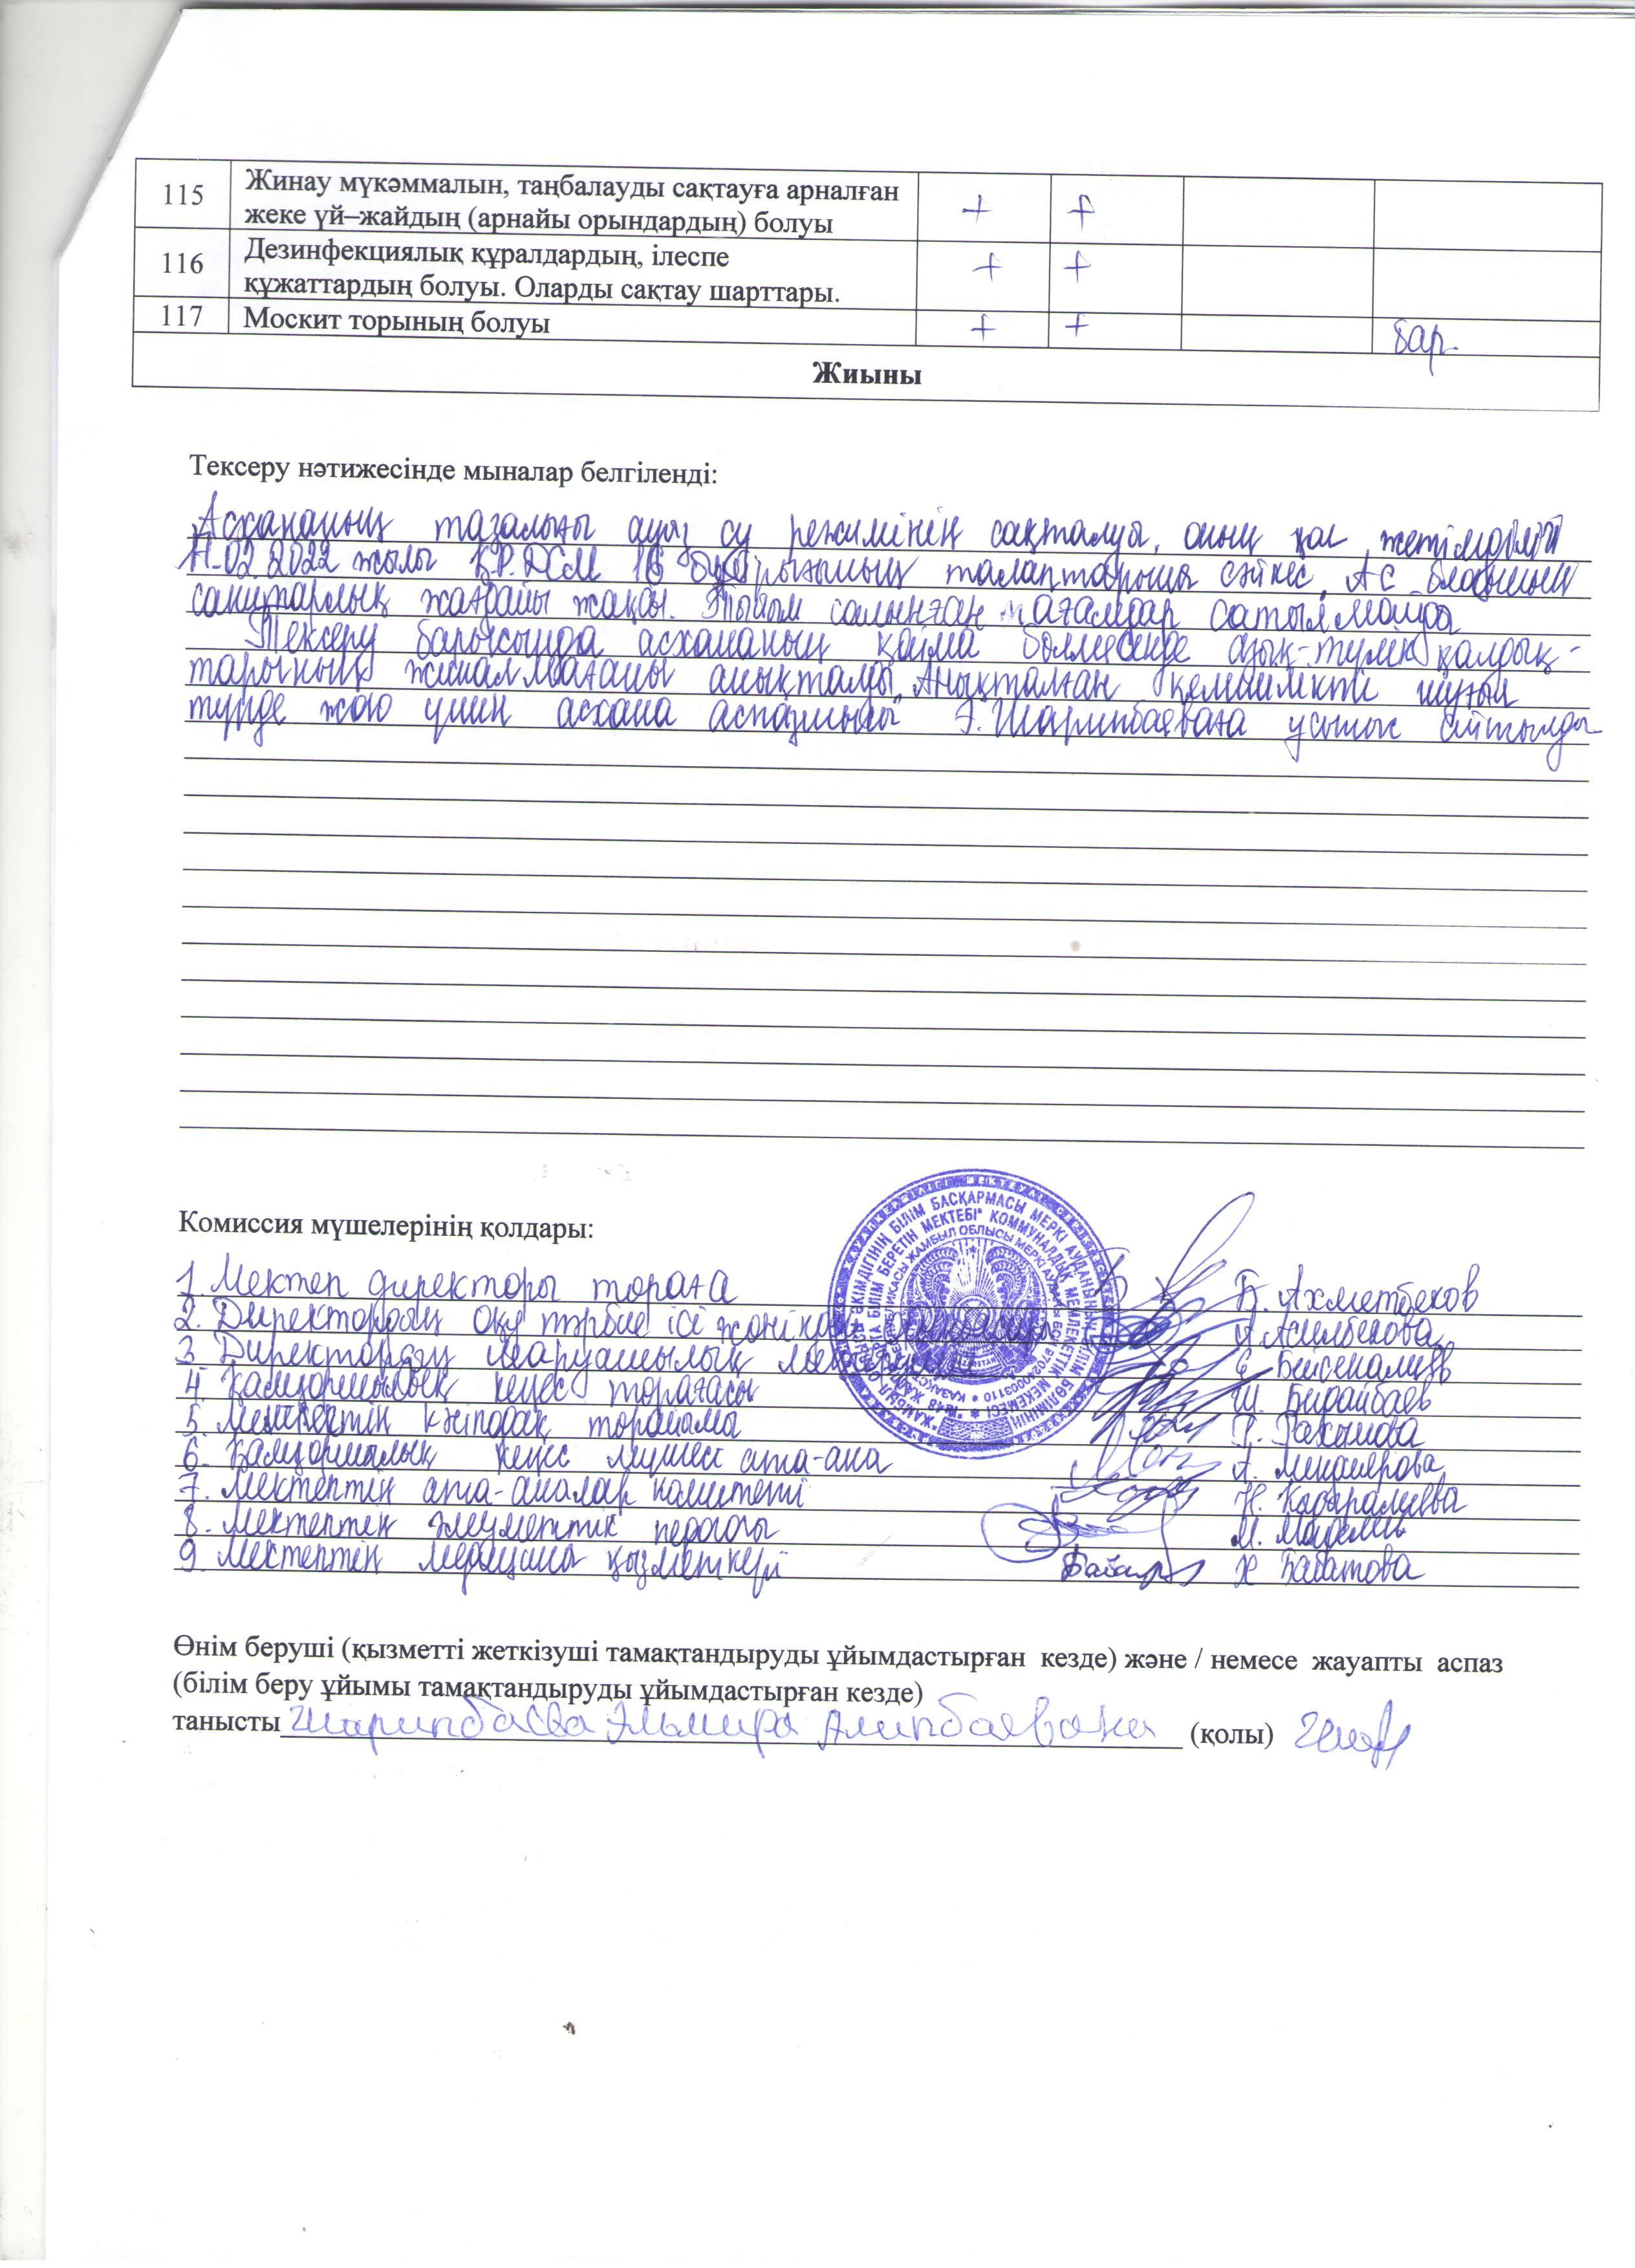 115 Жинау мүкәммалын, таңбалауды сақтауға арналған
жеке үй–жайдың (арнайы орындардың) болуы + +
116 Дезинфекциялық құралдардың, ілеспе
құжаттардың болуы. Оларды сақтау шарттары. + +
117 Москит торының болуы + + бар
Жиыны
Тексеру нәтижесінде мыналар белгіленді:
Асхананың тазалығы ауыз су режимінің сақталуы, оның қол жетімділігі
11.02.2022 жылы ҚР.ДСМ 16 бұйрығының талаптарына сәйкес, Ас блогының
санитарлық жағдайы жақсы. Тыйым салынған тағамдар сатылмайды
Тексеру барысында асхананың қойма бөлмесінде азық-түлік қалдық-
тарының жиналмағаны анықталды, Анықталған кемшілікті шұғыл
түрде жою үшін асхана аспазшысы Э.Шарипбаеваға ұсыныс айтылды
Комиссия мүшелерінің қолдары:
1. Мектеп директоры төраға Б. Ахметбеков
2. Директордың оқу тәрбие ісі жөніндегі Асилбекова
3. Директордың шаруашылық Бейсеналиев
4. Қамқоршылық кеңес төрағасы Ш. Бирайбаев
5. Мектептің кәсіподақ төрайымы Г. Рахимова
6. Қамқоршылық кеңес мүшесі ата-ана А.
7. Мектептің ата-аналар комитеті Н. Кабаралиева
8. Мектептің әлеуметтік педагогі М.
9. Мектептің медицина қызметкері Х Бабатова
"ЖАМБЫЛ ОБЛЫСЫ ӘКІМДІГІНІҢ БІЛІМ БАСҚАРМАСЫ МЕРКІ АУДАНЫНЫҢ БІЛІМ БӨЛІМІНІҢ
№48 ЖАЛПЫ ОРТА БІЛІМ БЕРЕТІН МЕКТЕБІ" КОММУНАЛДЫҚ МЕМЛЕКЕТТІК МЕКЕМЕСІ
ҚАЗАҚСТАН РЕСПУБЛИКАСЫ ЖАМБЫЛ ОБЛЫСЫ МЕРКІ АУДАНЫ
Өнім беруші (қызметті жеткізуші тамақтандыруды ұйымдастырған кезде) және / немесе жауапты аспаз
(білім беру ұйымы тамақтандыруды ұйымдастырған кезде)
танысты Шарипбаева Эльмира Алипбаевана (қолы)